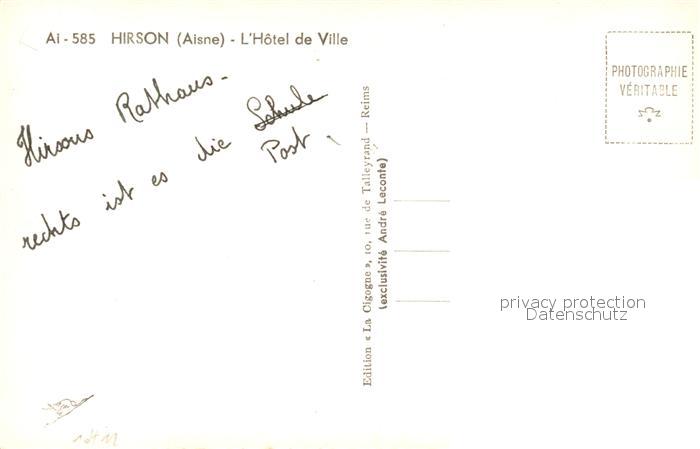 Ai - 585 HIRSON (Aisne) - L'Hôtel de Ville
PHOTOGRAPHIE
VÉRITABLE
Hirsons Rathaus -
rechts ist es die Schule
Post
Edition « La Cigogne », 10, rue de Talleyrand — Reims
(exclusivité André Leconte)
privacy protection
Datenschutz